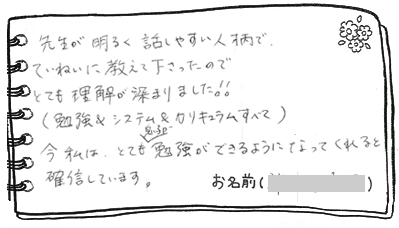 先生が明るく話しやすい人柄で、
ていねいに教えて下さったので
とても理解が深まりました!!
(勉強&システム&カリキュラムすべて)
今私は、とても勉強ができるようになってくれると
確信しています。
お名前(
)